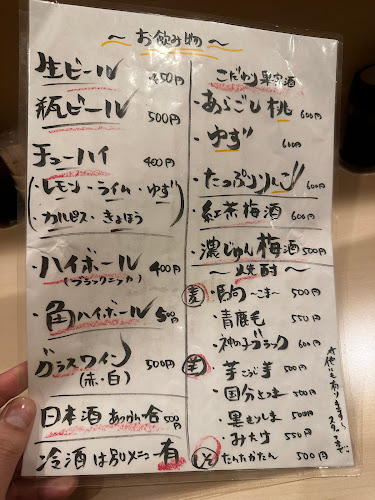 〜お飲み物〜
生ビール 450円
瓶ビール 500円
チューハイ 400円
(・レモン・ライム・ゆず
・カルピス・きょほう)
・ハイボール 400円
(ブラックニッカ)
・角ハイボール 500円
グラスワイン 500円
(赤・白)
日本酒 あつかん一合 500円
・冷酒は別メニュー有
こだわり果実酒
・あらごし桃 600円
・ゆず 600円
・たっぷりりんご 600円
・紅茶梅酒 600円
・濃じゅん梅酒 500円
〜焼酎〜
麦 ・駒 〜こま〜 500円
・青鹿毛 550円
・神の子ブラック 600円
芋 ・芋こうじ芋 500円
・国分 500円
・黒きりしま 500円
・みたけ 550円
しそ たんたかたん 500円